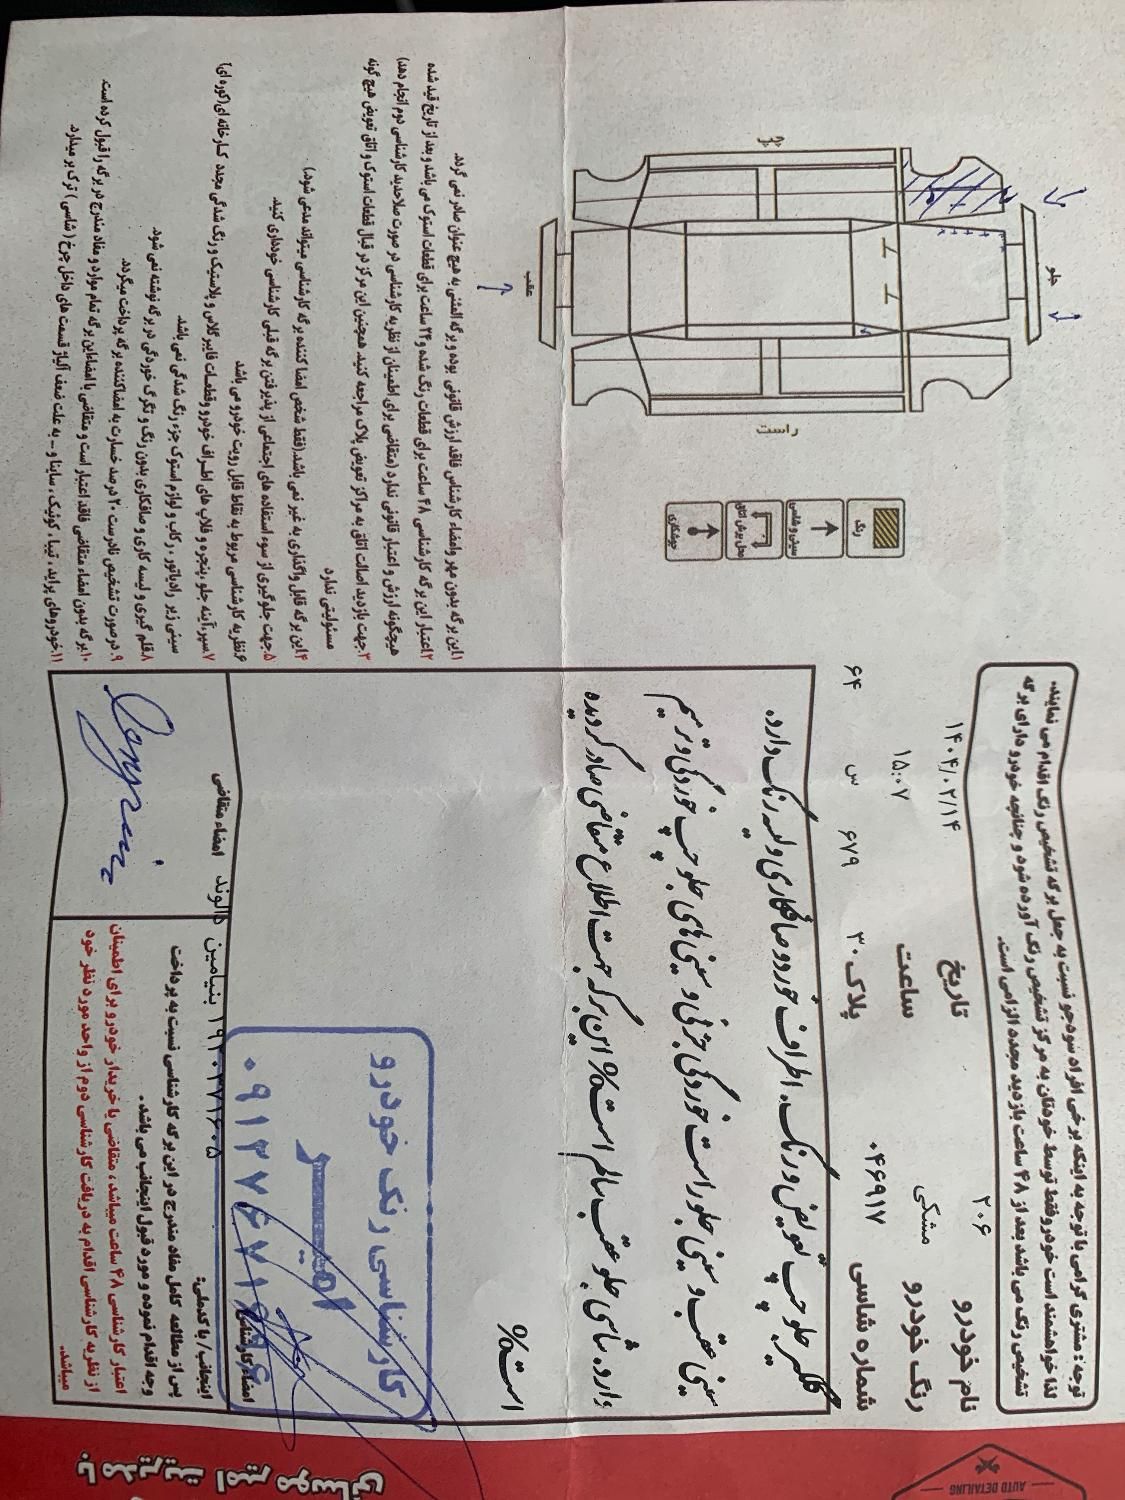 توجه: مشتری گرامی با توجه به اینکه برخی افراد سودجو نسبت به جعل برگه تشخیص رنگ اقدام می نمایند.
لذا خواهشمند است خودرو فقط توسط خودتان به مرکز تشخیص رنگ آورده شود و چنانچه خودرو دارای برگه
تشخیص رنگ می باشد بعد از ۴۸ ساعت بازدید مجدد الزامی است.
نام خودرو ۲۰۶ تاریخ ۱۴۰۴/۰۲/۱۴
رنگ خودرو مشکی ساعت ۱۵:۰۷
شماره شاسی ۰۴۶۹۱۷ پلاک ۳۰ ۶۷۹ س ۶۴
گلگیر جلو چپ تعویض و رنگ. اطراف خودرو صافکاری و لیسه رنگ دارد.
سینی عقب و سینی جلو راست خوردگی جزئی و سینی های جلو چپ خوردگی و ترمیم
دارد. شاسی جلو عقب سالم است% این برگه جهت اطلاع متقاضی صادر گردیده
است%
کارشناسی رنگ خودرو
امیر
امضاء کارشناس
اینجانب / با کدملی: ۱۹۲۰۳۷۱۶۰۵ بنیامین دالوند
پس از مطالعه کامل مفاد مندرج در این برگه کارشناسی نسبت به پرداخت
وجه اقدام نموده و مورد قبول اینجانب می باشد.
اعتبار کارشناسی ۴۸ ساعت میباشد، متقاضی یا خریدار خودرو برای اطمینان
از نظریه کارشناسی اقدام به دریافت کارشناسی دوم از واحد مورد نظر خود
میباشد.
امضاء متقاضی
جلو
عقب
چپ
راست
رنگ
سینی و شاسی
محل برش اتاق
جوشکاری
۱.این برگه بدون مهر وامضاء کارشناس فاقد ارزش قانونی بوده و برگه المثنی به هیچ عنوان صادر نمی گردد.
۲.اعتبار این برگه کارشناسی ۴۸ ساعت برای قطعات رنگ شده و ۲۴ ساعت برای قطعات استوک می باشد و بعد از تاریخ قید شده
هیچگونه ارزش و اعتبار قانونی ندارد (متقاضی برای اطمینان از نظریه کارشناسی در صورت صلاحدید کارشناسی دوم انجام دهد)
۳.جهت بازدید اصالت اتاق به مراکز تعویض پلاک مراجعه کنید. همچنین این مرکز در قبال قطعات استوک و اتاق تعویض هیچ گونه
مسئولیتی ندارد
۴.این برگه قابل واگذاری به غیر نمی باشد.(فقط شخص امضا کننده برگه کارشناسی میتواند مدعی شود)
۵.جهت جلوگیری از سوء استفاده های اجتماعی از پذیرفتن برگه قبلی کارشناسی خودداری کنید.
۶.نظریه کارشناسی مربوط به نقاط قابل رویت خودرو می باشد
۷.سپر، آینه جلو، پنجره و قلاب های اطراف خودرو وقطعات فایبرگلاس و پلاستیک و رنگ شدگی مجدد کارخانه ای(کوره ای)
سینی زیر رادیاتور، رکاب و لوازم استوک جزء رنگ شدگی نمی باشد.
۸.قلم گیری و لیسه کاری و صافکاری بدون رنگ و تگرگ خوردگی در برگه نوشته نمی شود
۹.درصورت تشخیص نادرست ۲۰ درصد خسارت به امضاکننده برگه پرداخت میگردد.
۱۰.برگه بدون امضاء متقاضی فاقد اعتبار است و متقاضی با امضا این برگه تمام موارد و مفاد مندرج در برگه را قبول کرده است.
۱۱.خودروهای پراید، تیبا، کوئیک، ساینا و ... به علت ضعف آلیاژ قسمت های داخل چرخ (شاسی) ترک بر میدارد.
AUTO DETAILING
با مدیریت امیر موسائی